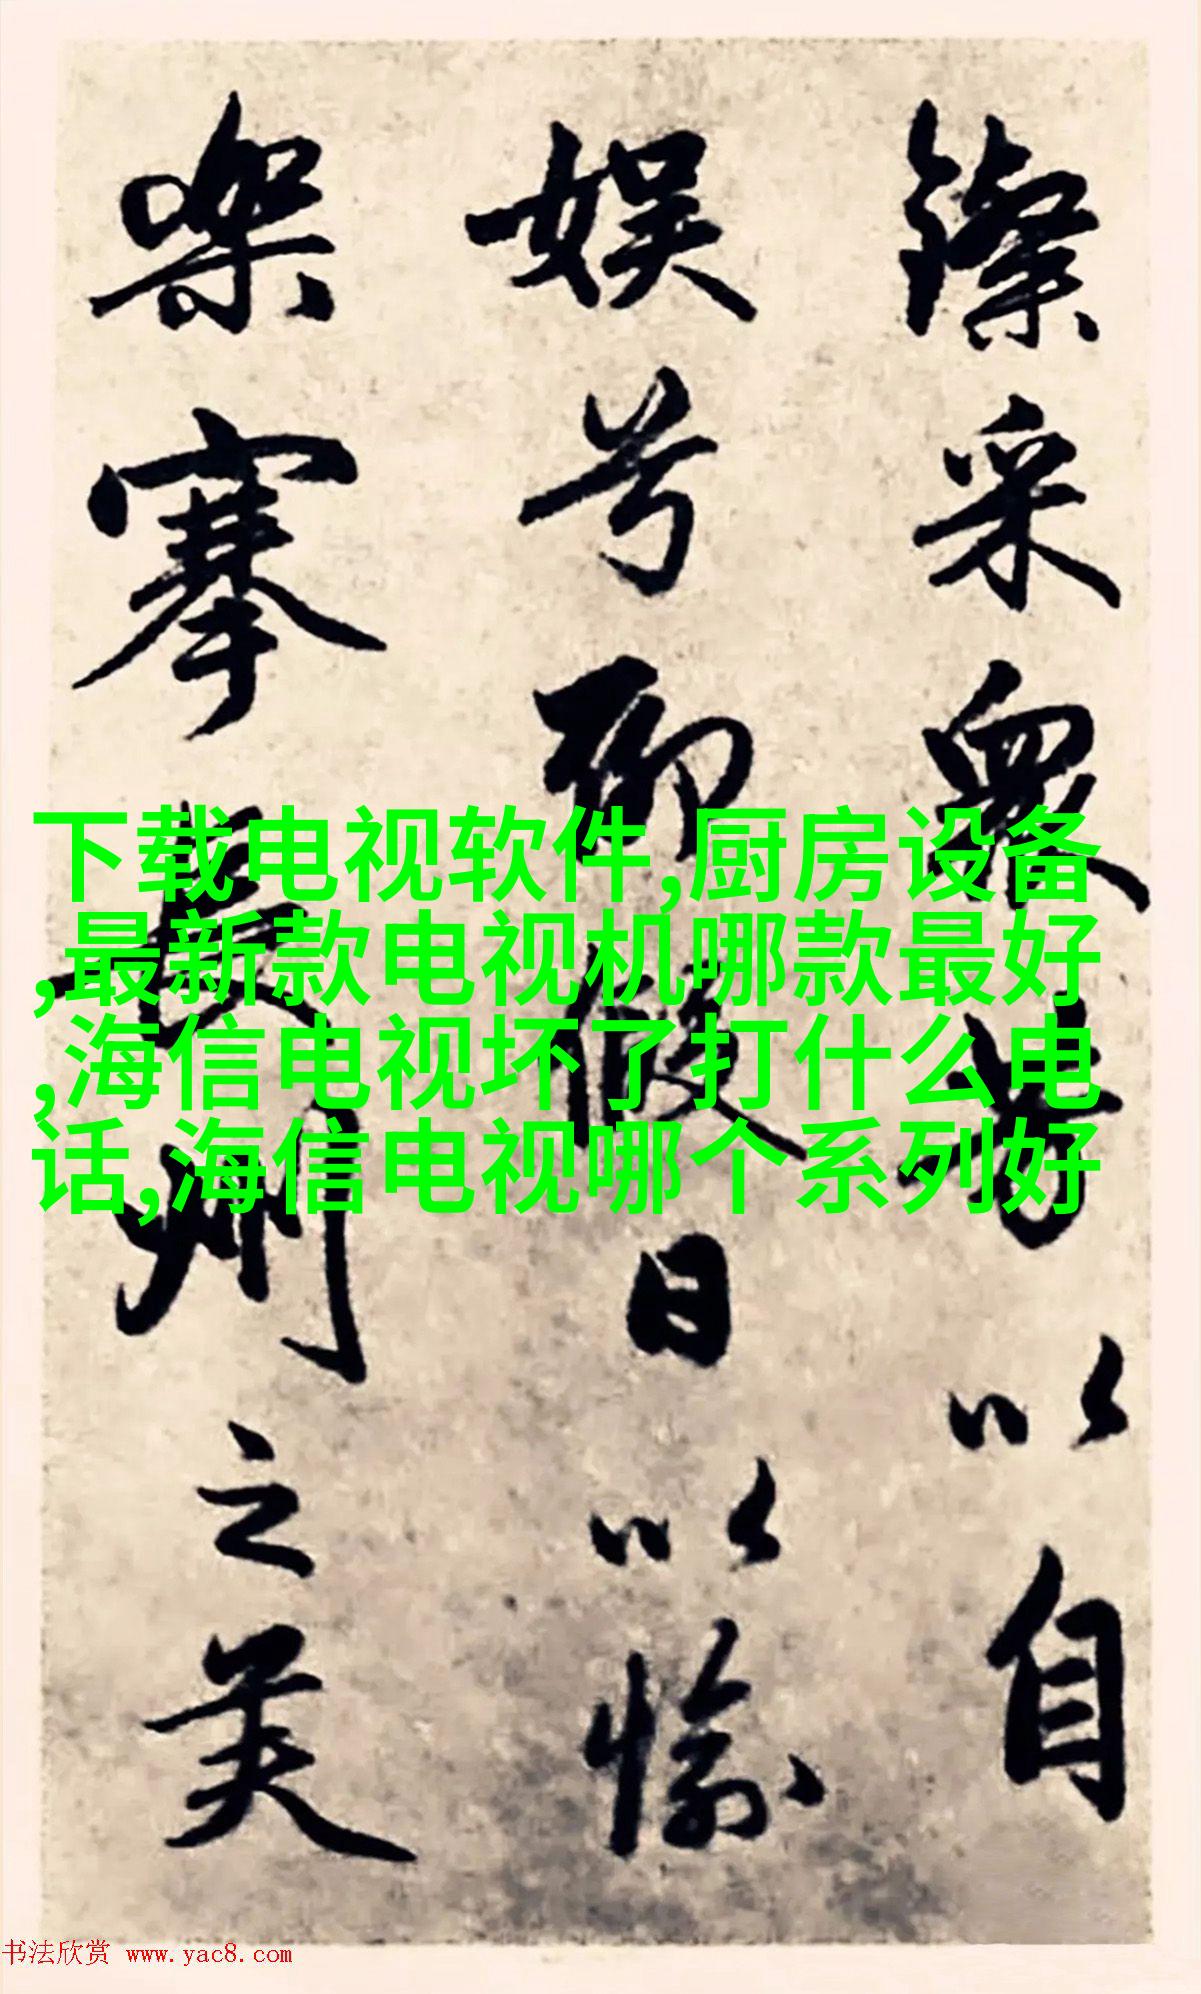 采眾芳以自
娱兮聊假日以愉
樂搴長洲之芙
下载电视软件,厨房设备
,最新款电视机哪款最好
,海信电视坏了打什么电
话,海信电视哪个系列好
书法欣赏 www.yac8.com